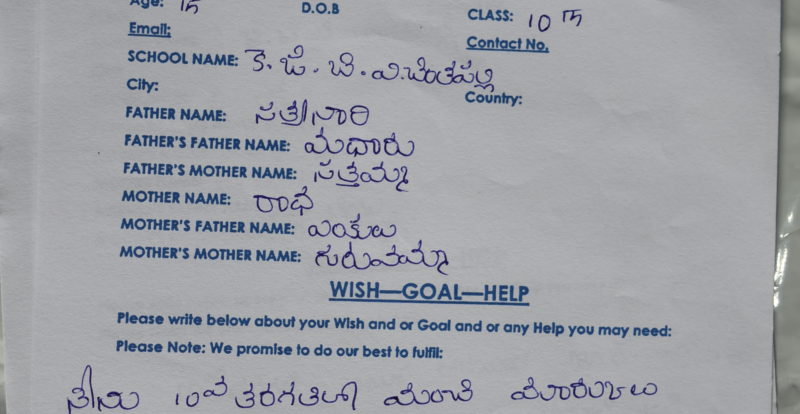 Age: 15 D.O.B CLASS: 10 th
Email: Contact No.
SCHOOL NAME: కె. జి. బి. వి. చింతపల్లి
City: Country:
FATHER NAME: సత్తినారి
FATHER'S FATHER NAME: మధారు
FATHER'S MOTHER NAME: సత్తెమ్మ
MOTHER NAME: రాధ
MOTHER'S FATHER NAME: వెంకులు
MOTHER'S MOTHER NAME: గురువమ్మా
WISH—GOAL—HELP
Please write below about your Wish and or Goal and or any Help you may need:
Please Note: We promise to do our best to fulfil:
నేను 10వ తరగతిలో మంచి మారుకులు